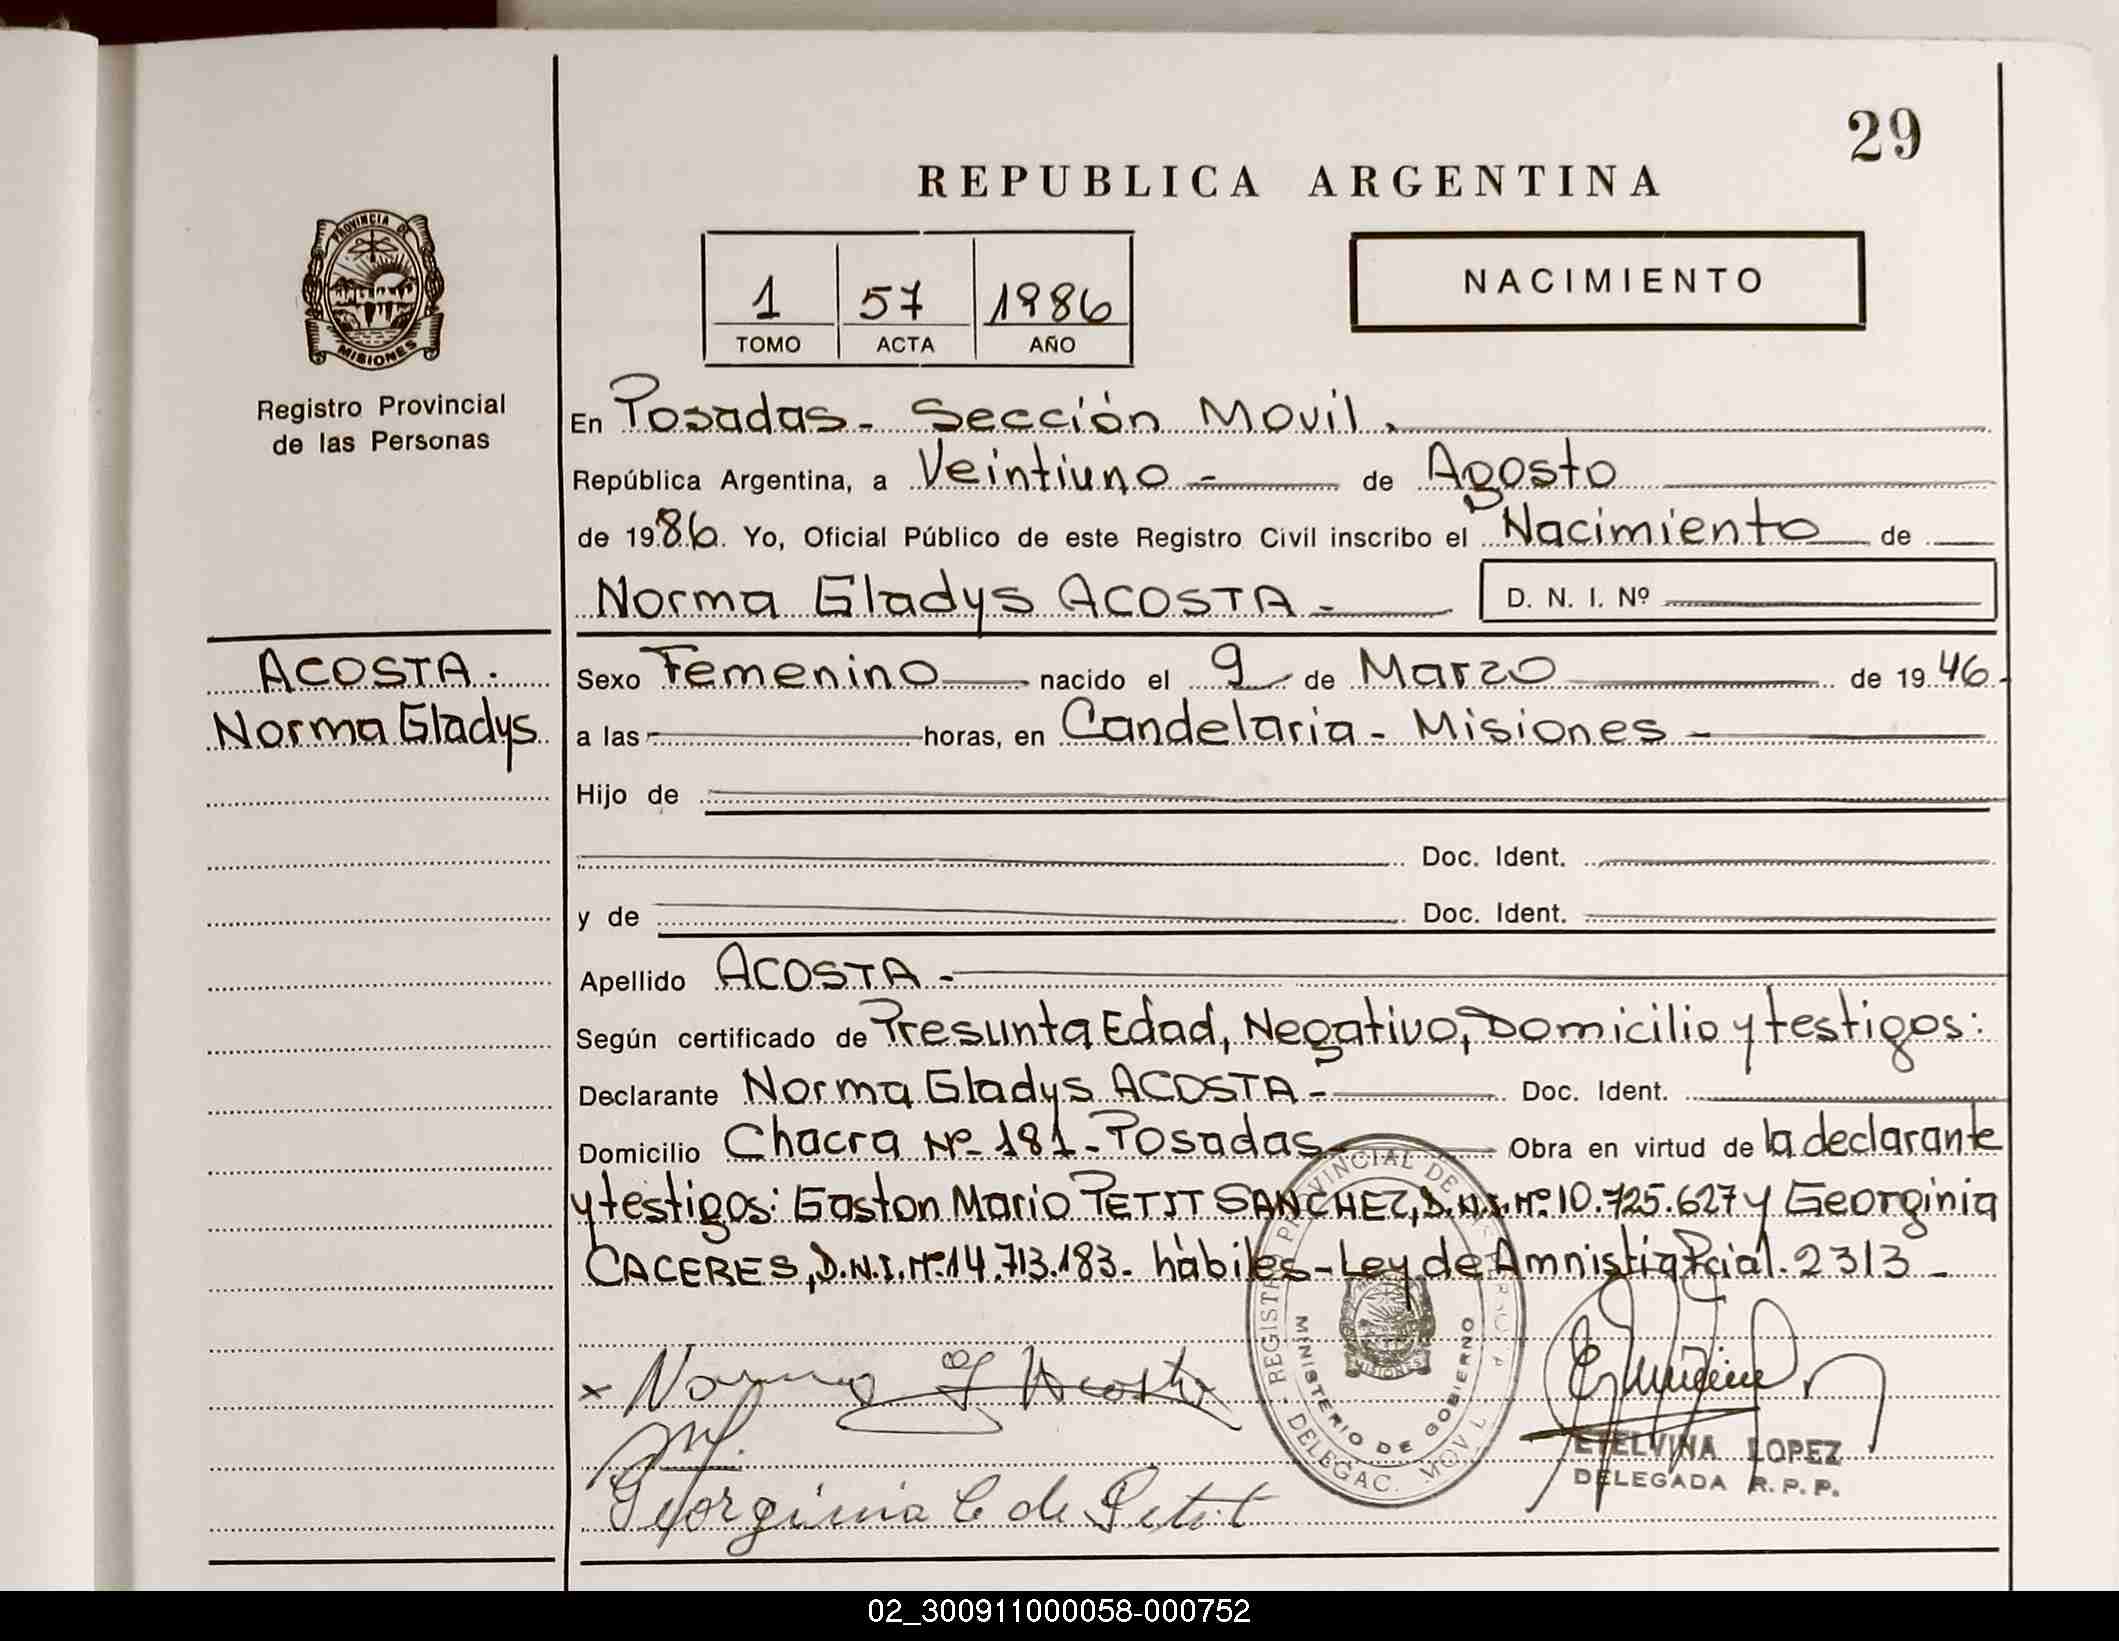 29
REPUBLICA ARGENTINA
PROVINCIA DE
MISIONES
Registro Provincial
de las Personas
1 57 1986
TOMO ACTA AÑO
NACIMIENTO
En Posadas - Sección Movil.
República Argentina, a Veintiuno - de Agosto
de 1986. Yo, Oficial Público de este Registro Civil inscribo el Nacimiento de
Norma Gladys ACOSTA - D. N. I. Nº
ACOSTA.
Norma Gladys
Sexo Femenino nacido el 9 de Marzo de 1946.
a las horas, en Candelaria - Misiones -
Hijo de
Doc. Ident.
y de Doc. Ident.
Apellido ACOSTA -
Según certificado de Presunta Edad, Negativo, Domicilio y testigos:
Declarante Norma Gladys ACOSTA - Doc. Ident.
Domicilio Chacra Nº 181 - Posadas - Obra en virtud de la declarante
y testigos: Gaston Mario PETIT SANCHEZ, D.N.I. Nº 10.725.627 y Georginia
CACERES, D.N.I. Nº 14.713.183 - hábiles - Ley de Amnistia Pcial. 2313 -
REGISTRO PROVINCIAL DE LAS PERSONAS
MINISTERIO DE GOBIERNO
MISIONES
DELEGAC. MOVIL
x Norma G Acosta
Georginia C de Petit
ETELVINA LOPEZ
DELEGADA R.P.P.
02_300911000058-000752